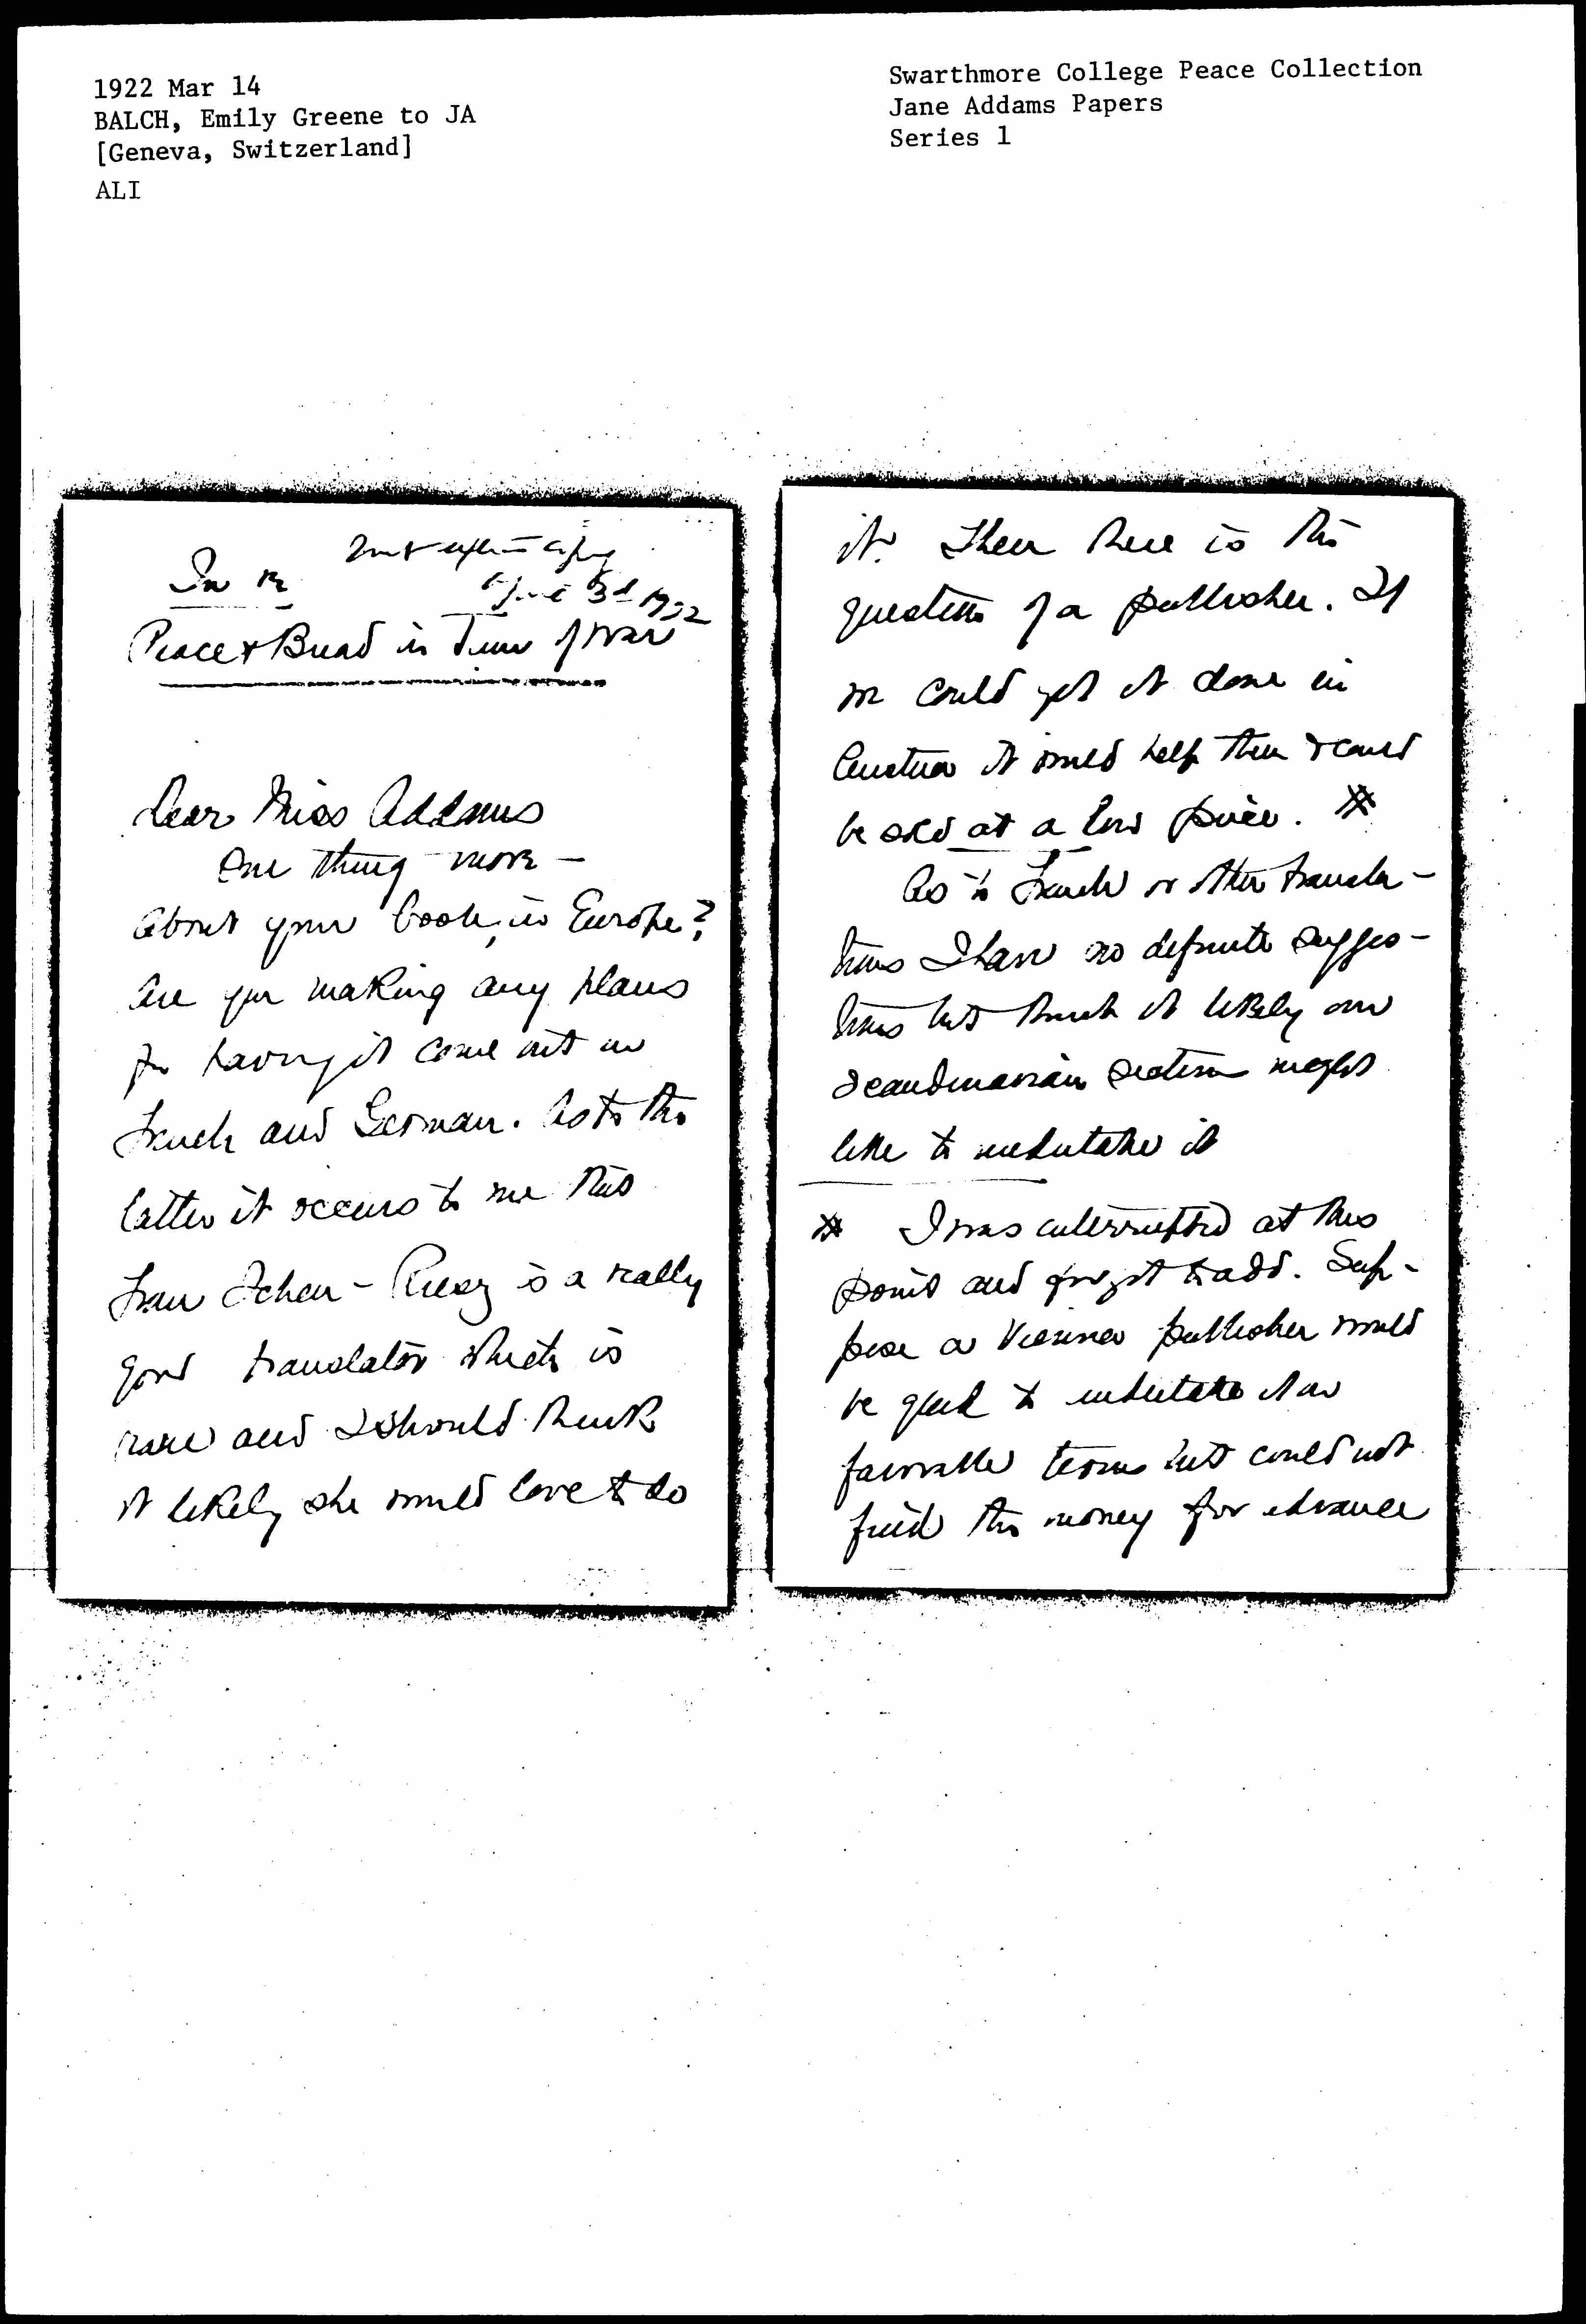 1922 Mar 14
BALCH, Emily Greene to JA
[Geneva, Switzerland]
ALI
Swarthmore College Peace Collection
Jane Addams Papers
Series 1
In re
3d 1922
Peace & Bread in Time of War
Dear Miss Addams
One thing more —
About your book, in Europe?
Are you making any plans
for having it come out in
French and German. As to the
latter it occurs to me that
Frau Scheu-Riesz is a really
good translator which is
rare and I should think
it likely she would love to do
it. Then there is the
question of a publisher. If
we could get it done in
Austria it would help them & could
be sold at a low price. #
As to French or other transla-
tions I have no definite sugges-
tions but think it likely our
Scandinavian section might
like to undertake it
# I was interrupted at this
point and forgot to add. Sup-
pose a Vienna publisher would
be glad to undertake it on
favorable terms but could not
find the money for advance